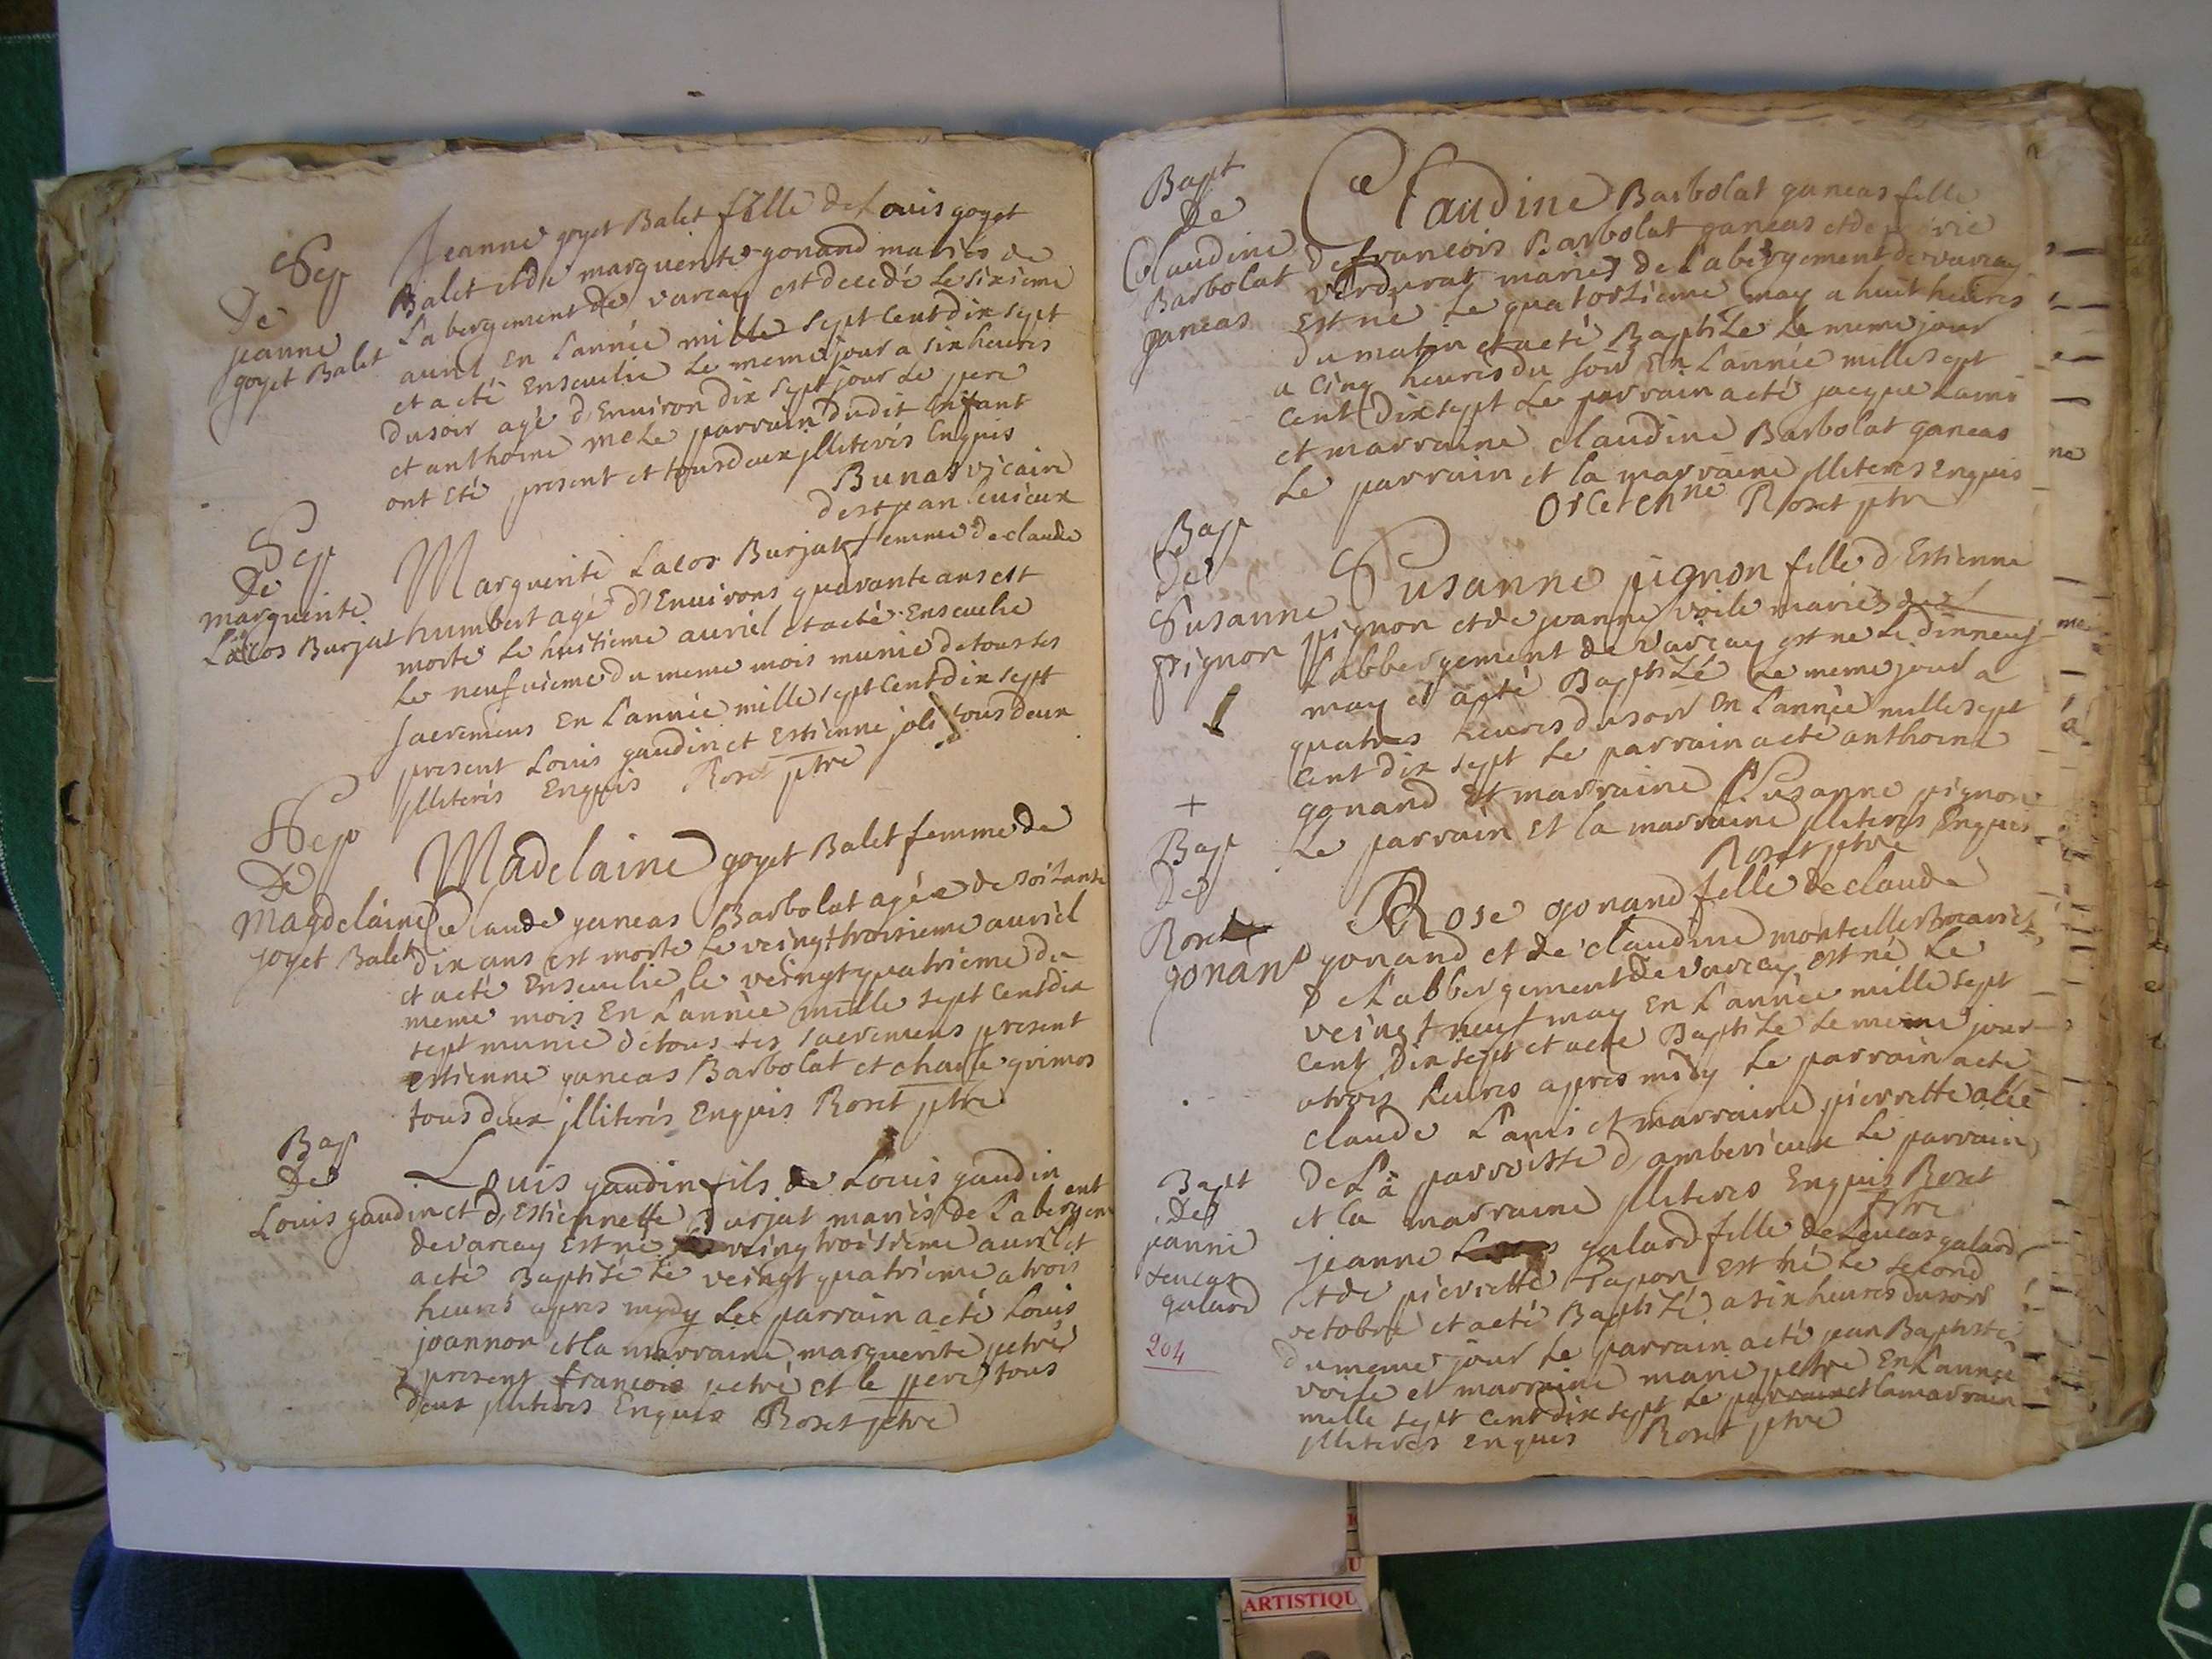 Sep
De
jeanne
goyet Balet
Jeanne goyet Balet fille de Louis goyet
Balet et de marguerite gonand mariés de
Labergement de varcay est decedé Le sixieme
auril En L'année mille sept Cent dix sept
et a eté Enseuelie Le meme jour a six heures
du soir agé d'Enuiron dix sept jour Le pere
et anthoine parrain dudit Enfant
ont Eté present et tous deux jlliterés Enquis
Bunas vicaire
Sep
De
marguerite
Lacos Burjat
Marguerite Lacos Burjat femme de claude
humbert agé d'Enuirons quarante ans est
morte Le huitieme auriel et a eté Enseuelie
Le neufuieme du meme mois munie de tous ses
sacremens En L'année mille sept Cent dix sept
present Louis gaudin et Estienne joli tous deux
jlliterés Enquis Roset ptre
Sep
De
Magdelaine
goyet Balet
Madelaine goyet Balet femme de
Claude ganeas Barbolat agée de soisante
dix ans est morte Le veingt troisieme auriel
et a eté Enseuelie le veingt quatrieme du
meme mois En L'année mille sept Cent dix
sept munie de tous ses sacremens present
estienne ganeas Barbolat et charle grimos
tous deux jlliterés Enquis Roset ptre
Bap
De
Louis gaudin
Louis gaudin fils de Louis gaudin
et d'Estiennette Burjat mariés de Labergement
de varcay est né veing troisieme auril et
a eté Baptisé le veingt quatrieme a trois
heures apres mydy Le parrain a eté Louis
joannon et la marraine marguerite petre
present francois petre et le pere tous
deux jlliteres Enquis Roset ptre
Bapt
De
Claudine
Barbolat
ganeas
Claudine Barbolat ganeas fille
de francois Barbolat ganeas et de
verdurat mariés de Labergement de varcay
Est né Le quatorsieme may a huit heures
du matin et a eté Baptisé Le meme jour
a Cinq heures du soir En L'année mille sept
Cent Dix sept Le parrain a eté jacque Lamé
et marraine claudine Barbolat ganeas
Le parrain et la marraine jlliteres Enquis
Roset ptre
Bap
De
Susanne
pignon
Susanne pignon fille d'Estienne
pignon et de jeanne voile mariés de
L'abbergement de varcay est né Le dixneuf
may et a eté Baptisé Le meme jour a
quatres heures du soir En L'année mille sept
Cent dix sept Le parrain a eté anthoine
gonand et marraine Susanne pignon
Le parrain Et la marraine jlliteres Enquis
Roset ptre
+
Bap
De
Rose
gonand
Rose gonand fille de claude
gonand et de claudine monteillet mariés
de L'abbergement de varcay est né Le
veingt neuf may En L'année mille sept
Cent Dix sept et a eté Baptisé Le meme jour
a trois heures apres midy Le parrain a eté
claude Lamis et marraine pierrette
de La parroisse d'amberieux Le parrain
et la marraine jlliteres Enquis Roset
ptre
Bapt
De
janne
Leucas
galard
jeanne galard fille de Leucas galard
et de pierrette Tapon est né Le second
octobre et a eté Baptisé a six heures du soir
du meme jour Le parrain a eté jean Baptiste
voile et marraine marie petre En L'année
mille sept Cent dix sept Le parrain et la marraine
jlliterés Enquis Roset ptre
204
ne
ARTISTIQU